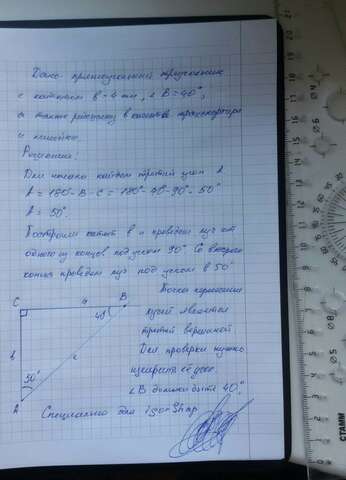 Дано прямоугольный треугольник
с катетом b = 4 см, ∠B = 40°,
а также
и линейка.
Решение:
Для начала найдем третий угол A
A = 180°- B - C = 180°- 40°- 90°= 50°
A = 50°
Построим катет b и проведем луч от
одного из концов под углом 90° Со второго
конца проведем луч под углом в 50°
Точка пересечения
лучей является
третьей вершиной
Для проверки нужно
измерить её угол.
∠B должен быть 40°
C a B
40°
b c
50°
A
Специально для IgorShap